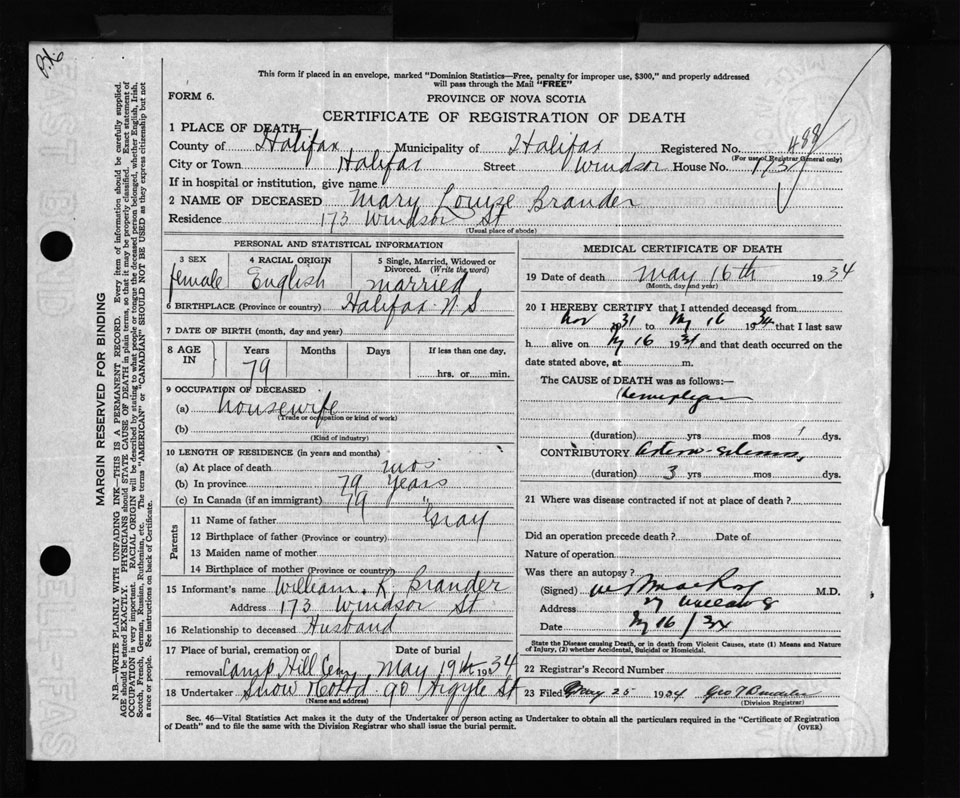 P.X.
This form if placed in an envelope, marked "Dominion Statistics—Free, penalty for improper use, $300," and properly addressed
will pass through the Mail "FREE"
FORM 6.
PROVINCE OF NOVA SCOTIA
CERTIFICATE OF REGISTRATION OF DEATH
1 PLACE OF DEATH
County of Halifax Municipality of Halifax Registered No. 488
(For use of Registrar General only)
City or Town Halifax Street Windsor House No. 173
If in hospital or institution, give name
2 NAME OF DECEASED Mary Louise Brander
Residence 173 Windsor St
(Usual place of abode)
PERSONAL AND STATISTICAL INFORMATION
3 SEX 4 RACIAL ORIGIN 5 Single, Married, Widowed or
Divorced. (Write the word)
female English married
6 BIRTHPLACE (Province or country) Halifax N.S
7 DATE OF BIRTH (month, day and year)
8 AGE IN Years Months Days If less than one day,
79 hrs. or min.
9 OCCUPATION OF DECEASED
(a) housewife
(Trade or occupation or kind of work)
(b)
(Kind of industry)
10 LENGTH OF RESIDENCE (in years and months)
(a) At place of death mos
(b) In province 79 years
(c) In Canada (if an immigrant) 79 "
Parents
11 Name of father Gray
12 Birthplace of father (Province or country)
13 Maiden name of mother
14 Birthplace of mother (Province or country)
15 Informant's name William. R. Brander
Address 173 Windsor St
16 Relationship to deceased Husband
17 Place of burial, cremation or Date of burial
removal Camp Hill Cem May 19th 1934
18 Undertaker Snow & Co Ltd 90 Argyle St
(Name and address)
MEDICAL CERTIFICATE OF DEATH
19 Date of death May 16th 1934
(Month, day and year)
20 I HEREBY CERTIFY that I attended deceased from
Nov 1931 to My 16 1934 that I last saw
h alive on My 16 1934 and that death occurred on the
date stated above, at m.
The CAUSE of DEATH was as follows:—
Hemiplegia
(duration) yrs mos 1 dys.
CONTRIBUTORY
(duration) 3 yrs mos dys.
21 Where was disease contracted if not at place of death?
Did an operation precede death? Date of
Nature of operation
Was there an autopsy?
(Signed) M.D.
Address
Date My 16/34
State the Disease causing Death, or in death from Violent Causes, state (1) Means and Nature
of Injury, (2) whether Accidental, Suicidal or Homicidal.
22 Registrar's Record Number
23 Filed May 25 1934 Geo
(Division Registrar)
Sec. 46—Vital Statistics Act makes it the duty of the Undertaker or person acting as Undertaker to obtain all the particulars required in the "Certificate of Registration
of Death" and to file the same with the Division Registrar who shall issue the burial permit.
(OVER)
MARGIN RESERVED FOR BINDING
N.B.—WRITE PLAINLY WITH UNFADING INK—THIS IS A PERMANENT RECORD. Every item of information should be carefully supplied.
AGE should be stated EXACTLY. PHYSICIANS should STATE CAUSE OF DEATH in plain terms, so that it may be properly classified. Exact statement of
OCCUPATION is very important. RACIAL ORIGIN will be described by stating to what people or tongue the deceased person belonged, whether English, Irish,
Scotch, French, German, Russian, Ruthenian, etc. The terms "AMERICAN" or "CANADIAN" SHOULD NOT BE USED as they express citizenship but not
a race or people. See instructions on back of Certificate.